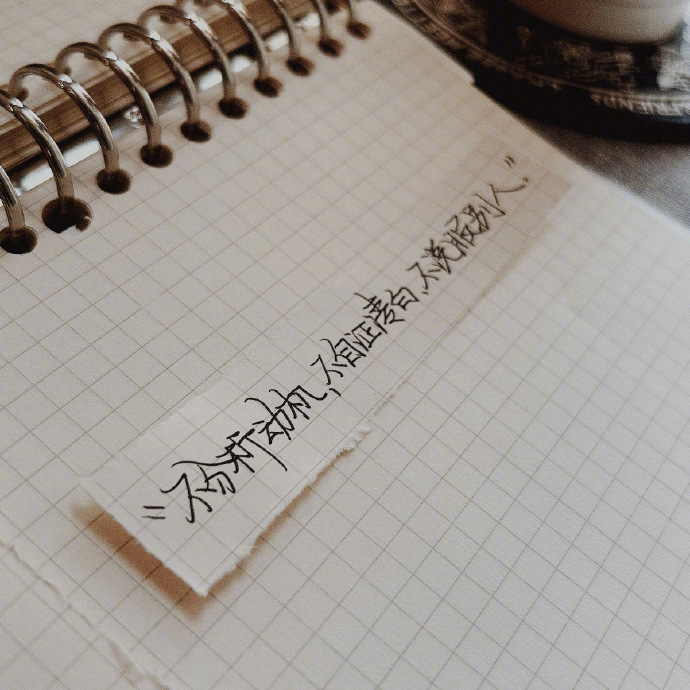 "不分析动机,不自证清白,不说服别人."